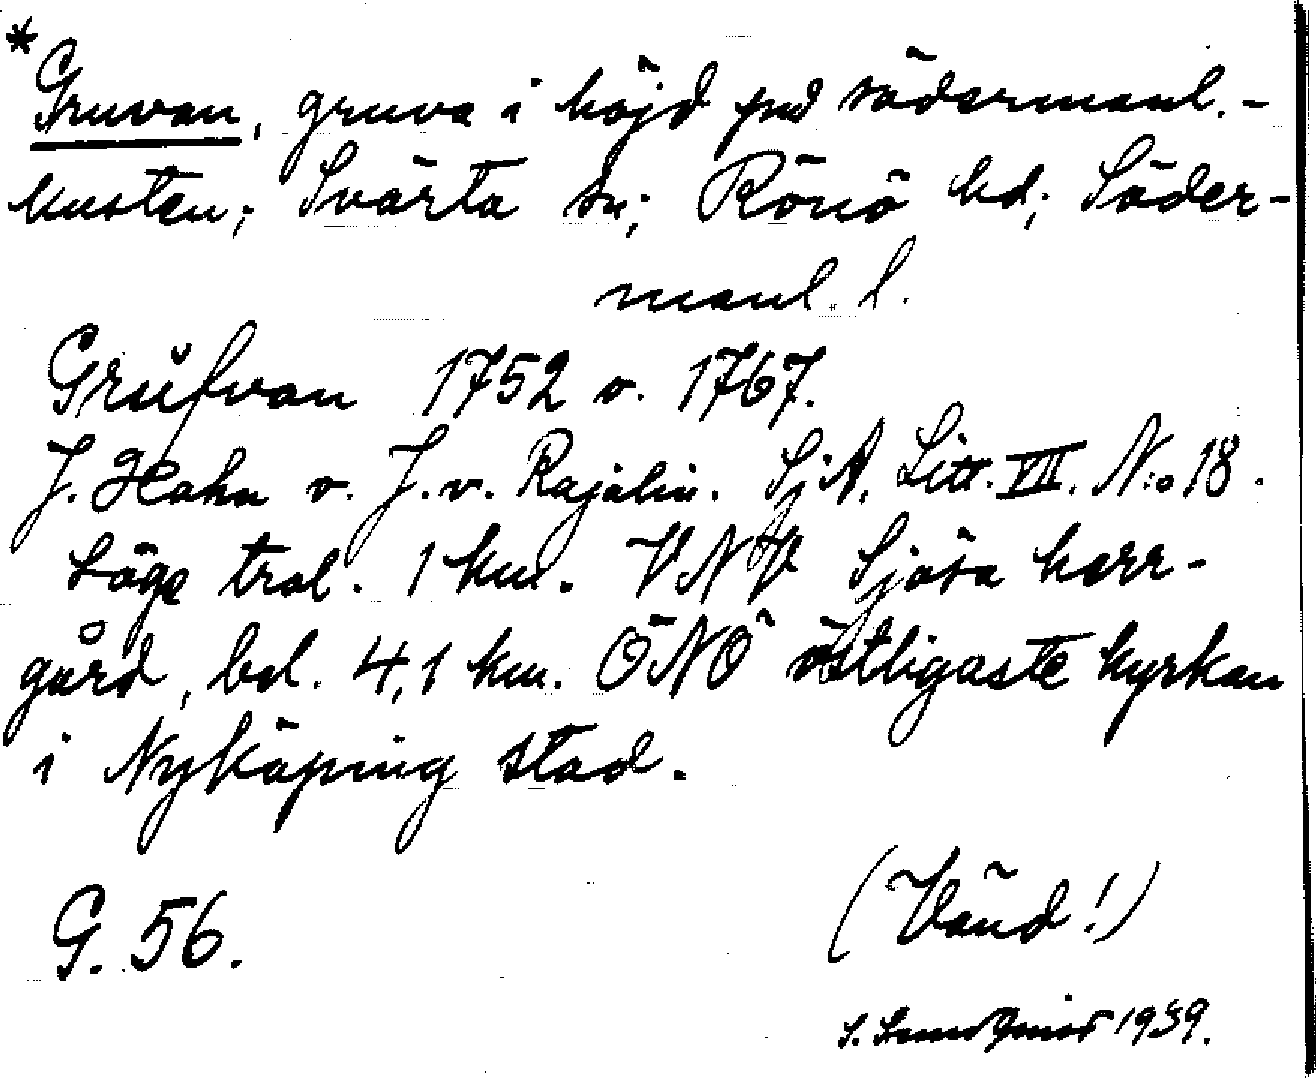 *
Gruvan, gruva i höjd på södermanl.-
kusten; Svärta sn; Rönö hd; Söder-
manl. l.
Grŭfvan 1752 o. 1767.
J. Hahn o. J. v. Rajalin. SjA. Litt. VII. N:o 18.
Låge trol. 1 km. VNV Sjösa herr-
gård, bel. 4,1 km. ÖNÖ östligaste kyrkan
i Nyköping stad.
(Vänd!)
G. 56.
S. Sundqvist 1939.